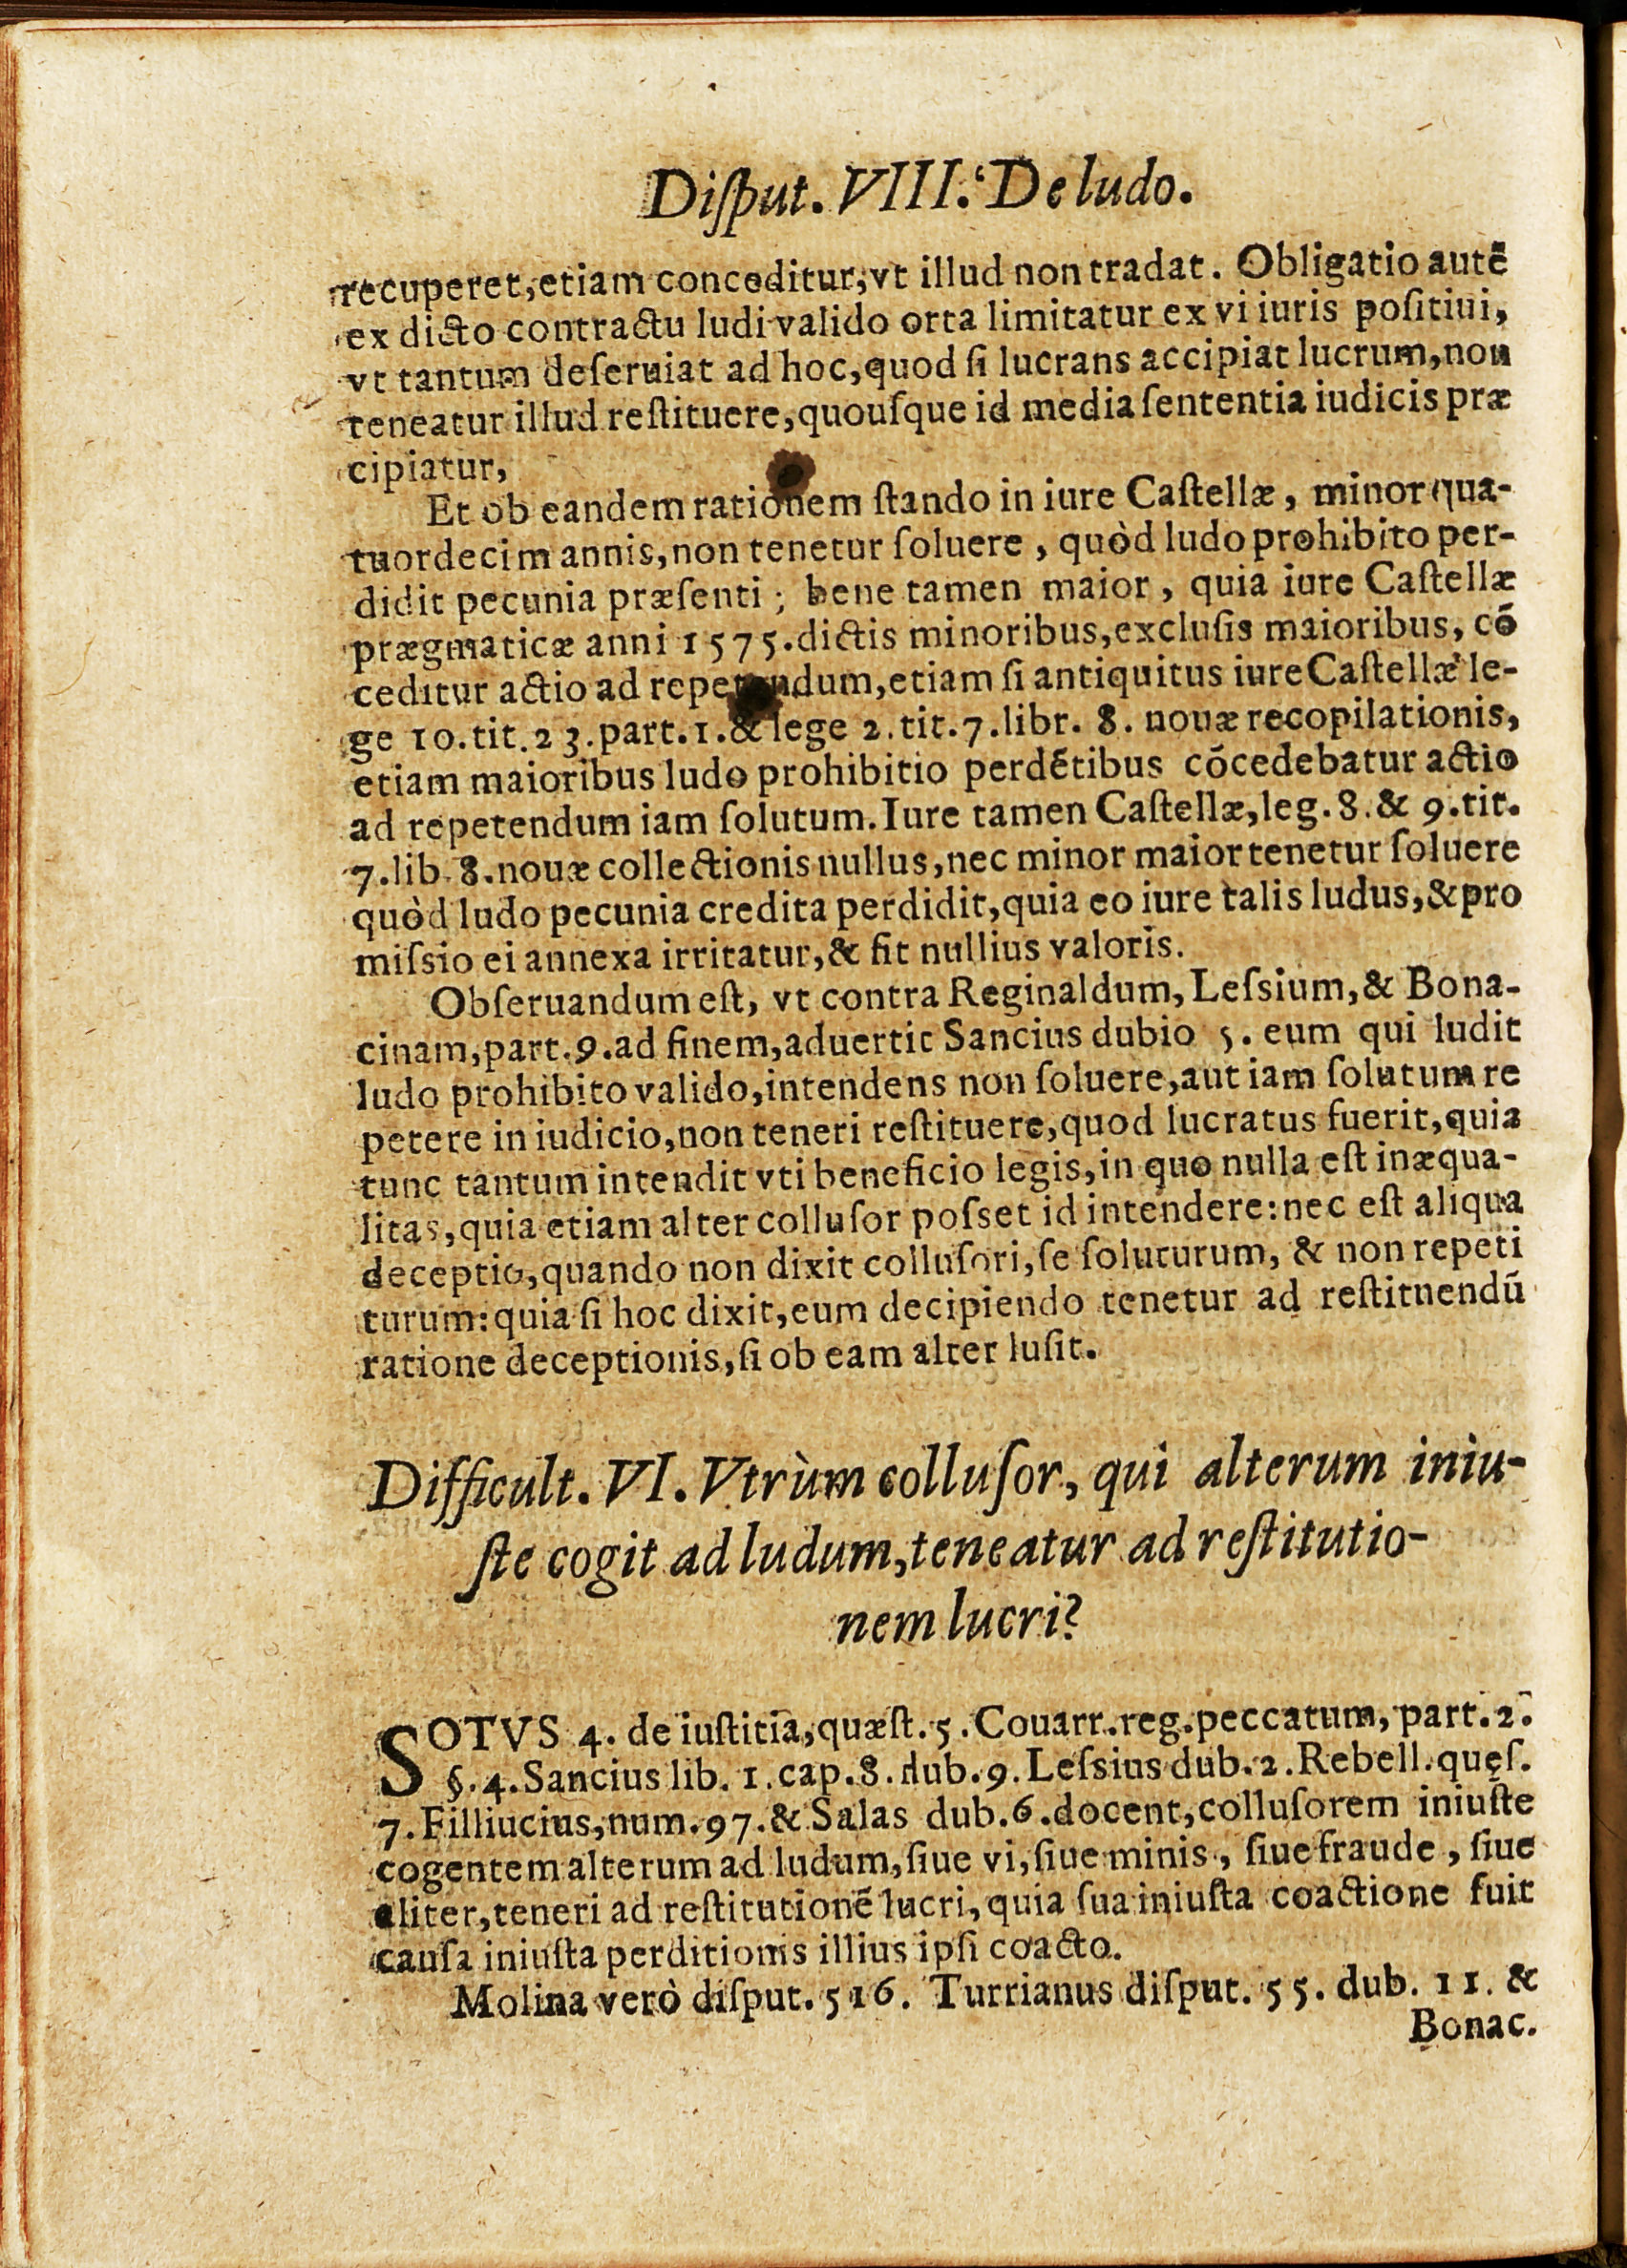 Diſput. VIII. De ludo.
recuperet, etiam conceditur, vt illud non tradat. Obligatio autē
ex dicto contractu ludi valido orta limitatur ex vi iuris poſitiui,
vt tantum deſeruiat ad hoc, quod ſi lucrans accipiat lucrum, non
teneatur illud reſtituere, quouſque id media ſententia iudicis præ
cipiatur,
Et ob eandem rationem ſtando in iure Caſtellæ, minor qua-
tuordecim annis, non tenetur ſoluere, quòd ludo prohibito per-
didit pecunia præſenti; bene tamen maior, quia iure Caſtellæ
prægmaticæ anni 1575. dictis minoribus, excluſis maioribus, cō
ceditur actio ad repetendum, etiam ſi antiquitus iure Caſtellæ le-
ge 10. tit. 23. part. 1. & lege 2. tit. 7. libr. 8. nouæ recopilationis,
etiam maioribus ludo prohibitio perdētibus cōcedebatur actio
ad repetendum iam ſolutum. Iure tamen Caſtellæ, leg. 8. & 9. tit.
7. lib. 8. nouæ collectionis nullus, nec minor maior tenetur ſoluere
quòd ludo pecunia credita perdidit, quia eo iure talis ludus, & pro
miſsio ei annexa irritatur, & fit nullius valoris.
Obſeruandum eſt, vt contra Reginaldum, Leſsium, & Bona-
cinam, part. 9. ad finem, aduertit Sancius dubio 5. eum qui ludit
ludo prohibito valido, intendens non ſoluere, aut iam ſolutum re
petere in iudicio, non teneri reſtituere, quod lucratus fuerit, quia
tunc tantum intendit vti beneficio legis, in quo nulla eſt inæqua-
litas, quia etiam alter colluſor poſset id intendere: nec eſt aliqua
deceptio, quando non dixit colluſori, ſe ſoluturum, & non repeti
turum: quia ſi hoc dixit, eum decipiendo tenetur ad reſtituendū
ratione deceptionis, ſi ob eam alter luſit.
Difficult. VI. Vtrùm colluſor, qui alterum iniu-
ſte cogit ad ludum, teneatur ad reſtitutio-
nem lucri?
SOTVS 4. de iuſtitia, quæſt. 5. Couarr. reg. peccatum, part. 2.
§. 4. Sancius lib. 1. cap. 8. dub. 9. Leſsius dub. 2. Rebell. quęſ.
7. Filliucius, num. 97. & Salas dub. 6. docent, colluſorem iniuſte
cogentem alterum ad ludum, ſiue vi, ſiue minis, ſiue fraude, ſiue
aliter, teneri ad reſtitutionē lucri, quia ſua iniuſta coactione fuit
cauſa iniuſta perditionis illius ipſi coacto.
Molina verò diſput. 516. Turrianus diſput. 55. dub. 11. &
Bonac.